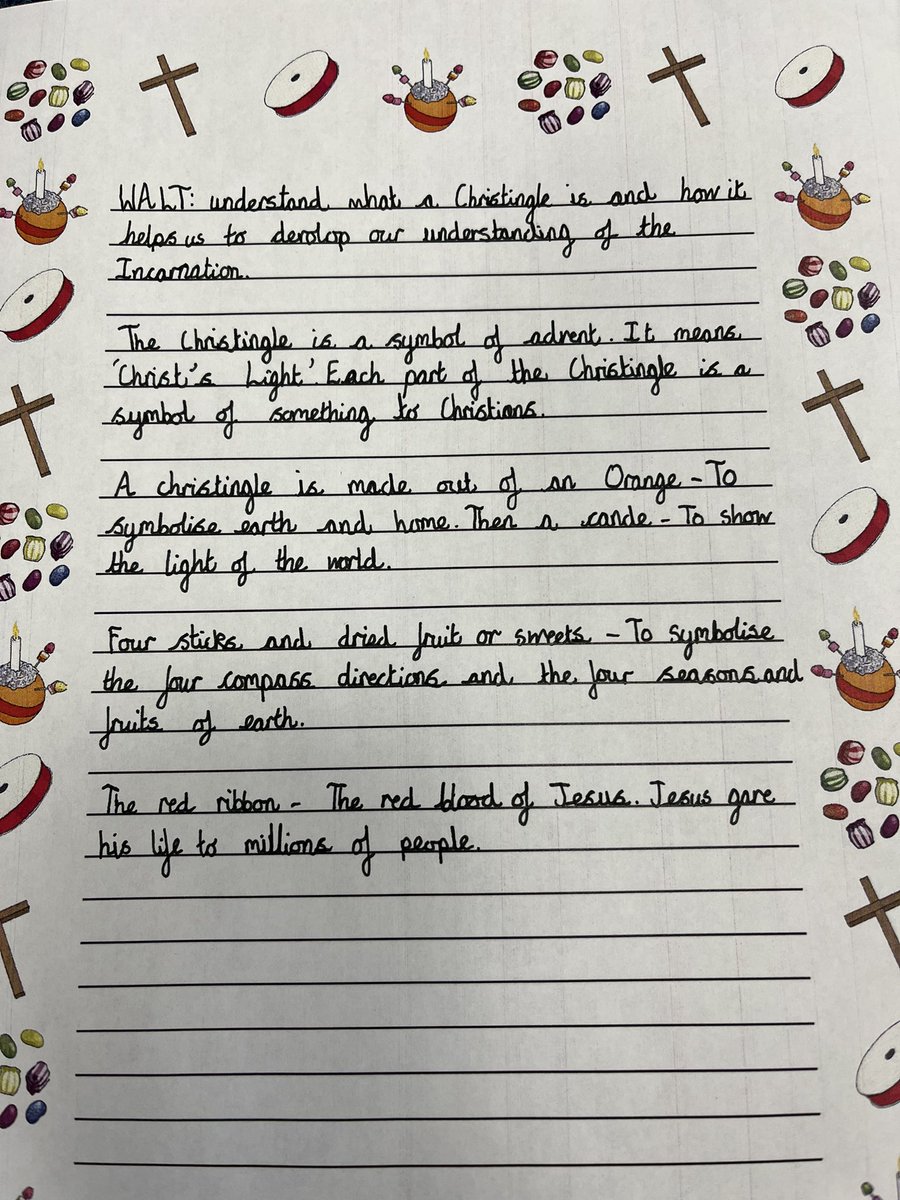 WALT: understand what a Christingle is and how it
helps us to derolop our understanding of the
Incarnation.
The Christingle is a symbol of advent. It means
'Christ's Light'. Each part of the Christingle is a
symbol of something to Christians.
A christingle is made out of an Orange - To
symbolise earth and home. Then a cande - To show
the light of the world.
Four sticks and dried fruit or sweets - To symbolise
the four compass directions and the four seasons and
fruits of earth.
The red ribbon - The red blood of Jesus. Jesus gave
his life to millions of people.